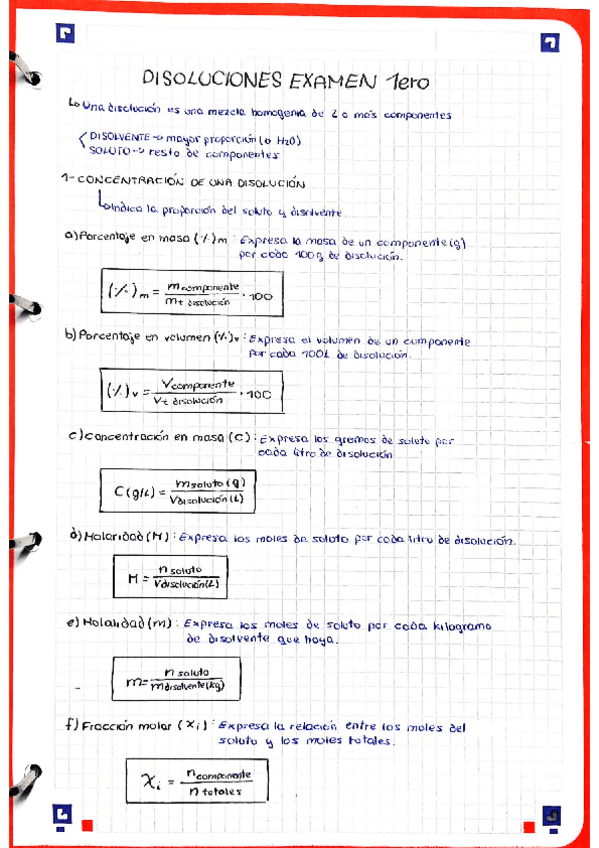 DISOLUCIONES EXAMEN 1ero
Una disolución es una mezcla homogenia de 2 o más componentes
DISOLVENTE → mayor proporción (o H₂O)
SOLUTO → resto de componentes
1- CONCENTRACIÓN DE UNA DISOLUCIÓN
Indica la proporción del soluto y disolvente.
a) Porcentaje en masa (%)m : Expresa la masa de un componente (g)
por cada 100 g de disolución.
(%)m = m componente / m t disolución · 100
b) Porcentaje en volumen (%)v : Expresa el volumen de un componente
por cada 100L de disolución.
(%)v = V componente / V t disolución · 100
c) Concentración en masa (C) : Expresa los gramos de soluto por
cada litro de disolución
C (g/L) = m soluto (g) / V disolución (L)
d) Molaridad (M) : Expresa los moles de soluto por cada litro de disolución.
M = n soluto / V disolución (L)
e) Molalidad (m) : Expresa los moles de soluto por cada kilogramo
de disolvente que haya.
m = n soluto / m disolvente (kg)
f) Fracción molar (Xi) : Expresa la relación entre los moles del
soluto y los moles totales.
Xi = n componente / n totales